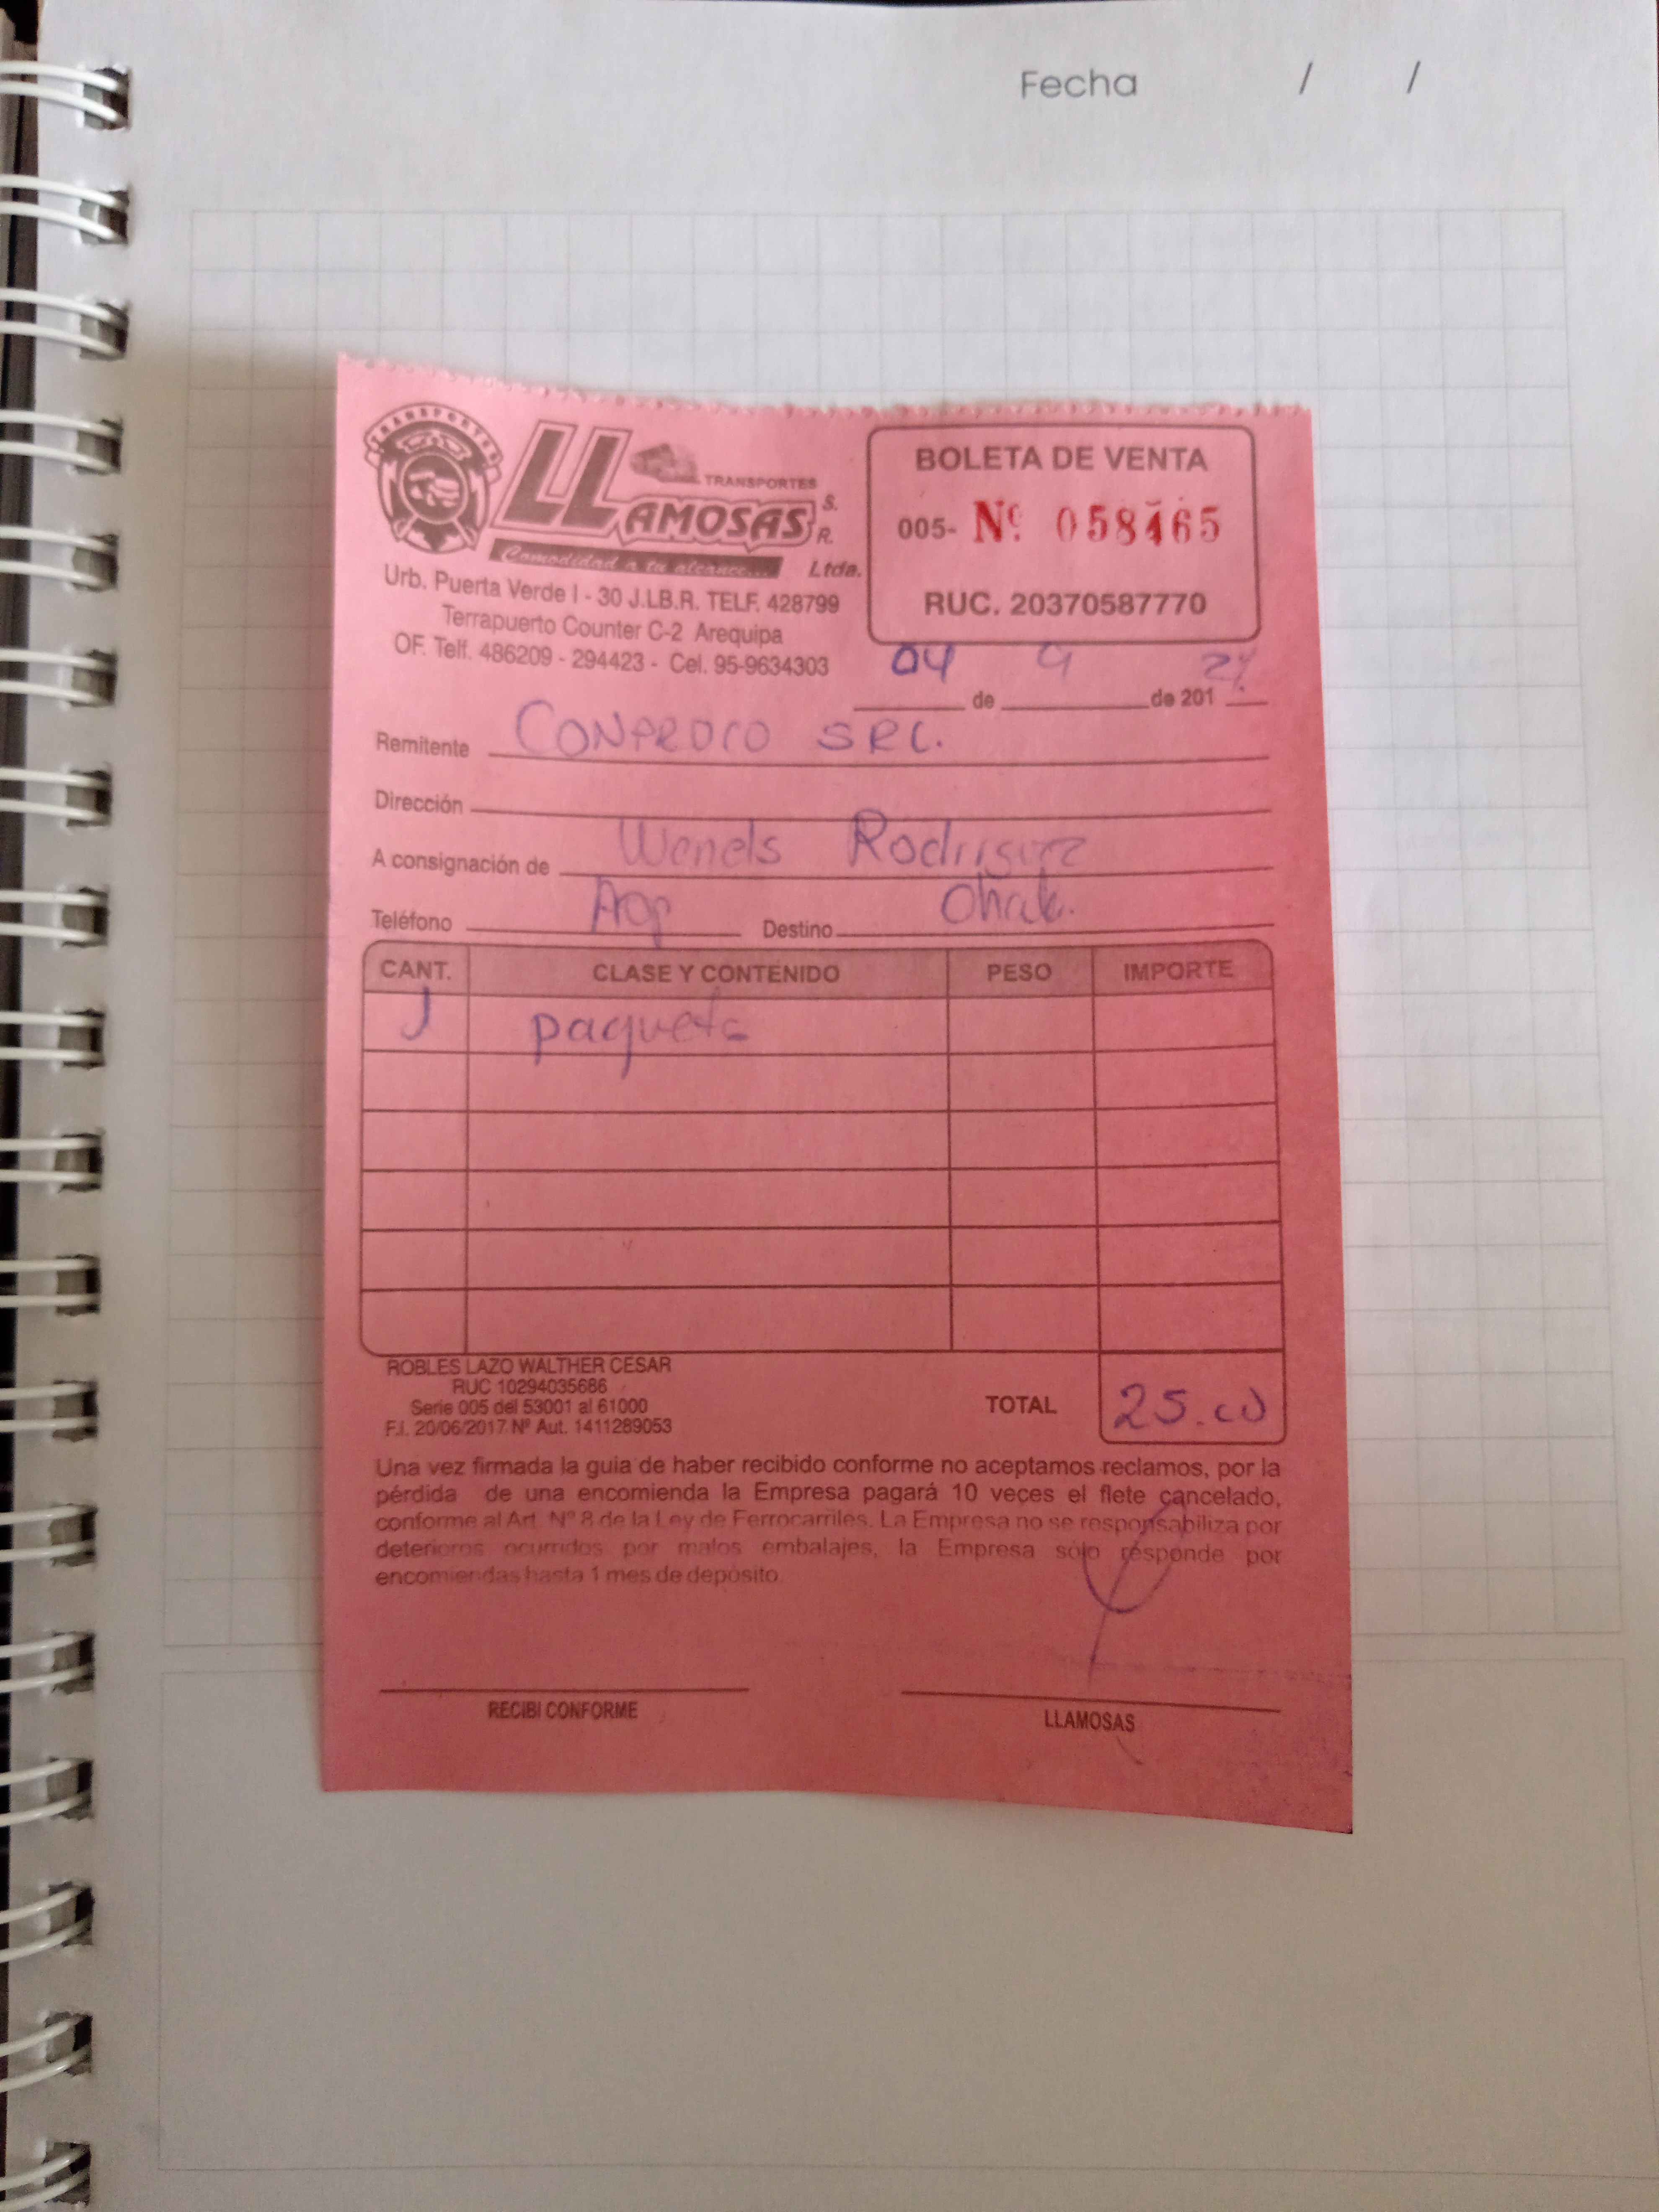 Fecha / /
TRANSPORTES
LLAMOSAS S.R. Ltda.
TRANSPORTES
Comodidad a tu alcance...
Urb. Puerta Verde I - 30 J.LB.R. TELF. 428799
Terrapuerto Counter C-2 Arequipa
OF. Telf. 486209 - 294423 - Cel. 95-9634303
BOLETA DE VENTA
005- Nº 058465
RUC. 20370587770
04 de 9 de 201
Remitente CONPROCO SRL.
Dirección
A consignación de Rodriguez
Teléfono Aqp Destino
CANT. CLASE Y CONTENIDO PESO IMPORTE
1 paquete
ROBLES LAZO WALTHER CESAR
RUC 10294035686
Serie 005 del 53001 al 61000
F.I. 20/06/2017 Nº Aut. 1411289053
TOTAL 25.00
Una vez firmada la guia de haber recibido conforme no aceptamos reclamos, por la
pérdida de una encomienda la Empresa pagará 10 veces el flete cancelado,
conforme al Art. Nº 8 de la Ley de Ferrocarriles. La Empresa no se responsabiliza por
deterioros ocurridos por malos embalajes, la Empresa sólo responde por
encomiendas hasta 1 mes de depósito.
RECIBI CONFORME
LLAMOSAS